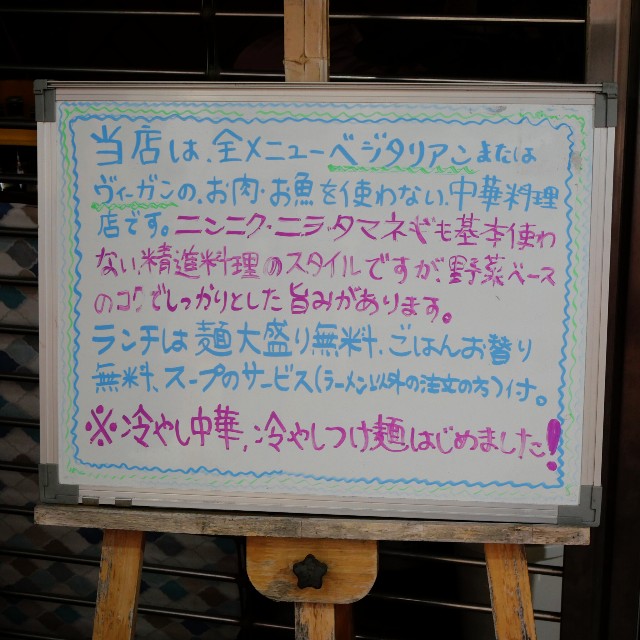 当店は、全メニューベジタリアンまたは
ヴィーガンの、お肉・お魚を使わない、中華料理
店です。ニンニク・ニラ・タマネギも基本使わ
ない、精進料理のスタイルですが、野菜ベース
のコクでしっかりとした旨みがあります。
ランチは麺大盛り無料、ごはんお替り
無料、スープのサービス(ラーメン以外の注文の方)付。
※冷やし中華、冷やしつけ麺はじめました!